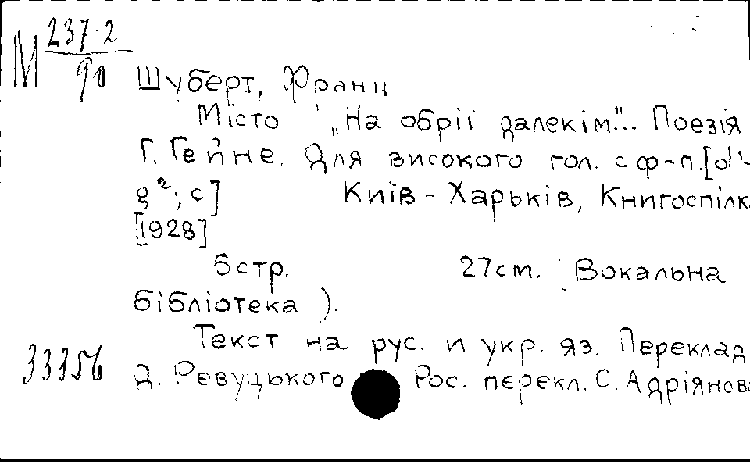 М 237-2
90
Шуберт, Франц
Місто „На обрії далекім"... Поезія
Г. Гейне. Для високого гол. с ф-п. [d¹-
g²; c] Київ - Харьків, Книгоспілк
[1928]
5стр. 27см. Вокальна
бібліотека ).
Текст на рус. и укр. яз. Переклад
33356 Д. Ревуцького Рос. перекл. С. Адріянова